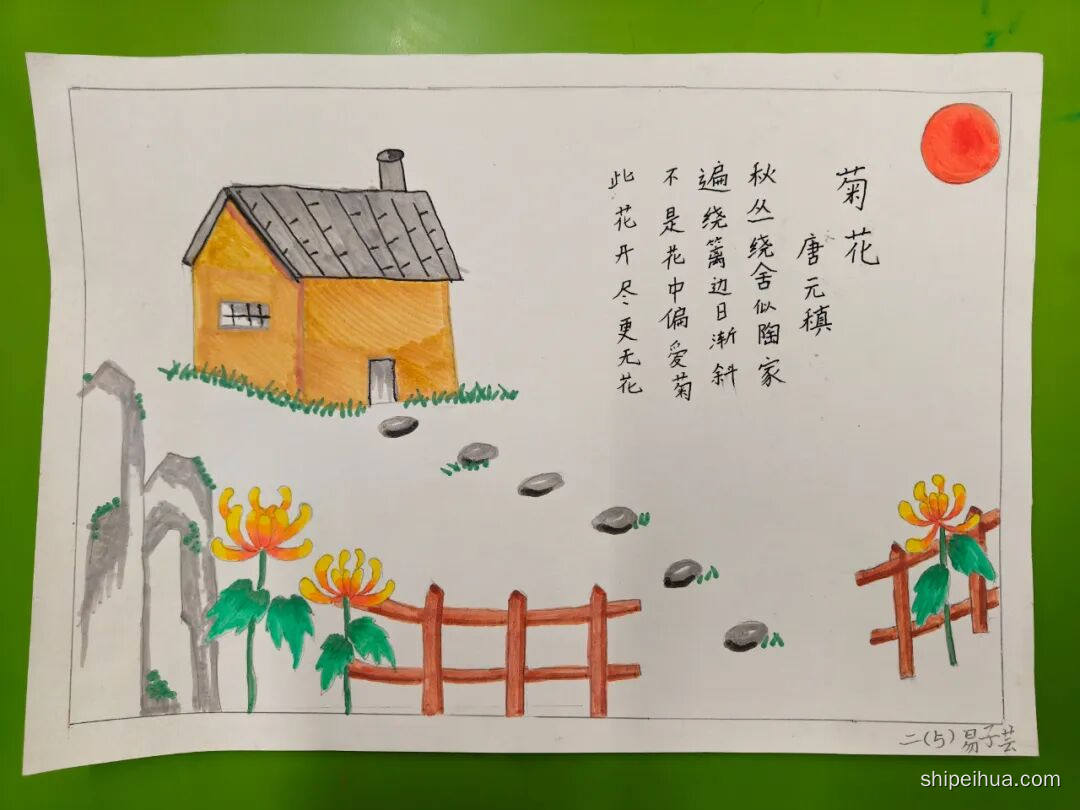 菊花
唐元稹
秋丛绕舍似陶家
遍绕篱边日渐斜
不是花中偏爱菊
此花开尽更无花
二(5)易子芸
shipeihua.com